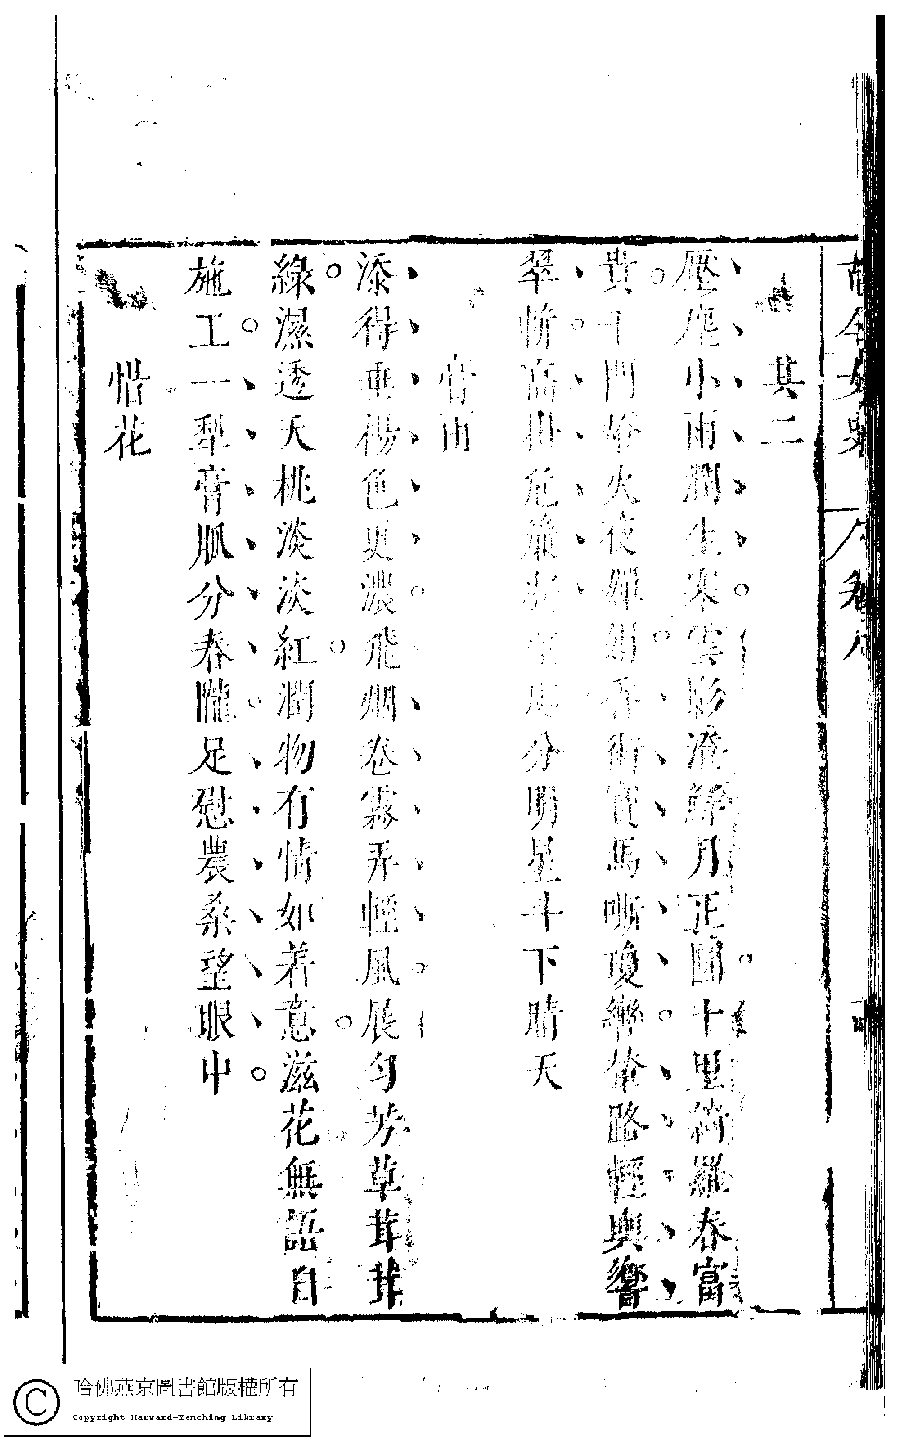 古今女史 卷八
其二
壓塵小雨潤生寒雲影澄鮮月正圓十里綺羅春富
貴千門燈火夜嬋娟香街寶馬嘶瓊轡輦路輕輿響
翠軿高掛危簾 分明星斗下晴天
膏雨
添得垂楊色更濃飛烟卷霧弄輕風展勻芳草茸茸
綠濕透夭桃淡淡紅潤物有情如着意滋花無語自
施工一犁膏脉分春隴足慰農桑望眼中
惜花
哈佛燕京圖書館版權所有
Copyright Harvard-Yenching Library